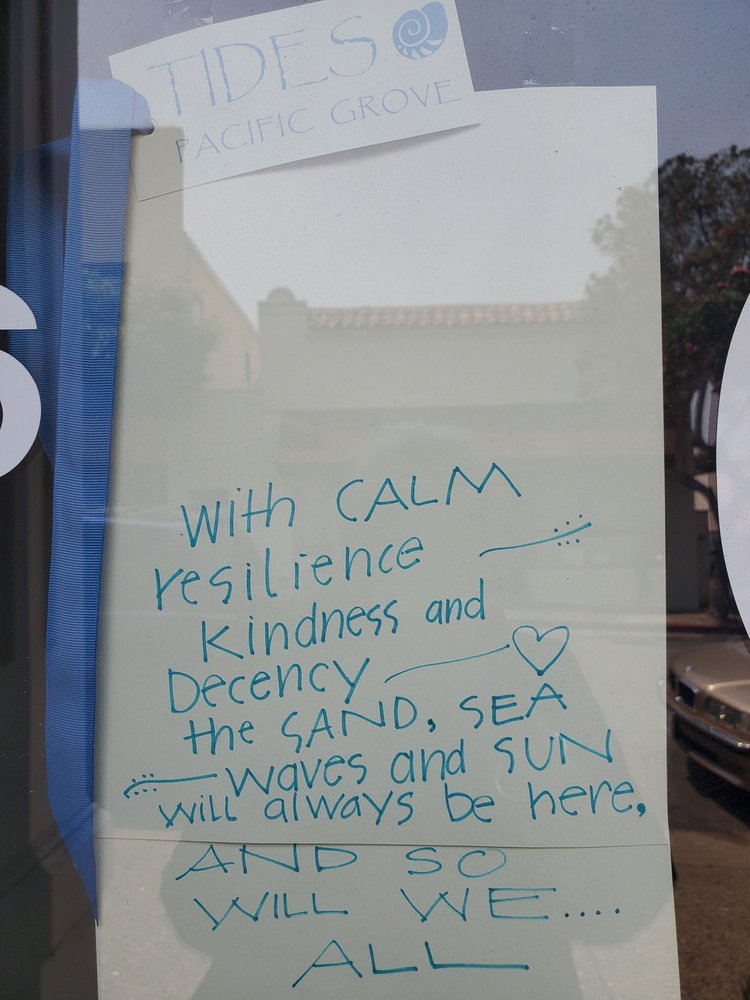 TIDES
PACIFIC GROVE
With CALM
resilience
Kindness and
Decency
the SAND, SEA
waves and SUN
will always be here,
AND SO
WILL WE....
ALL